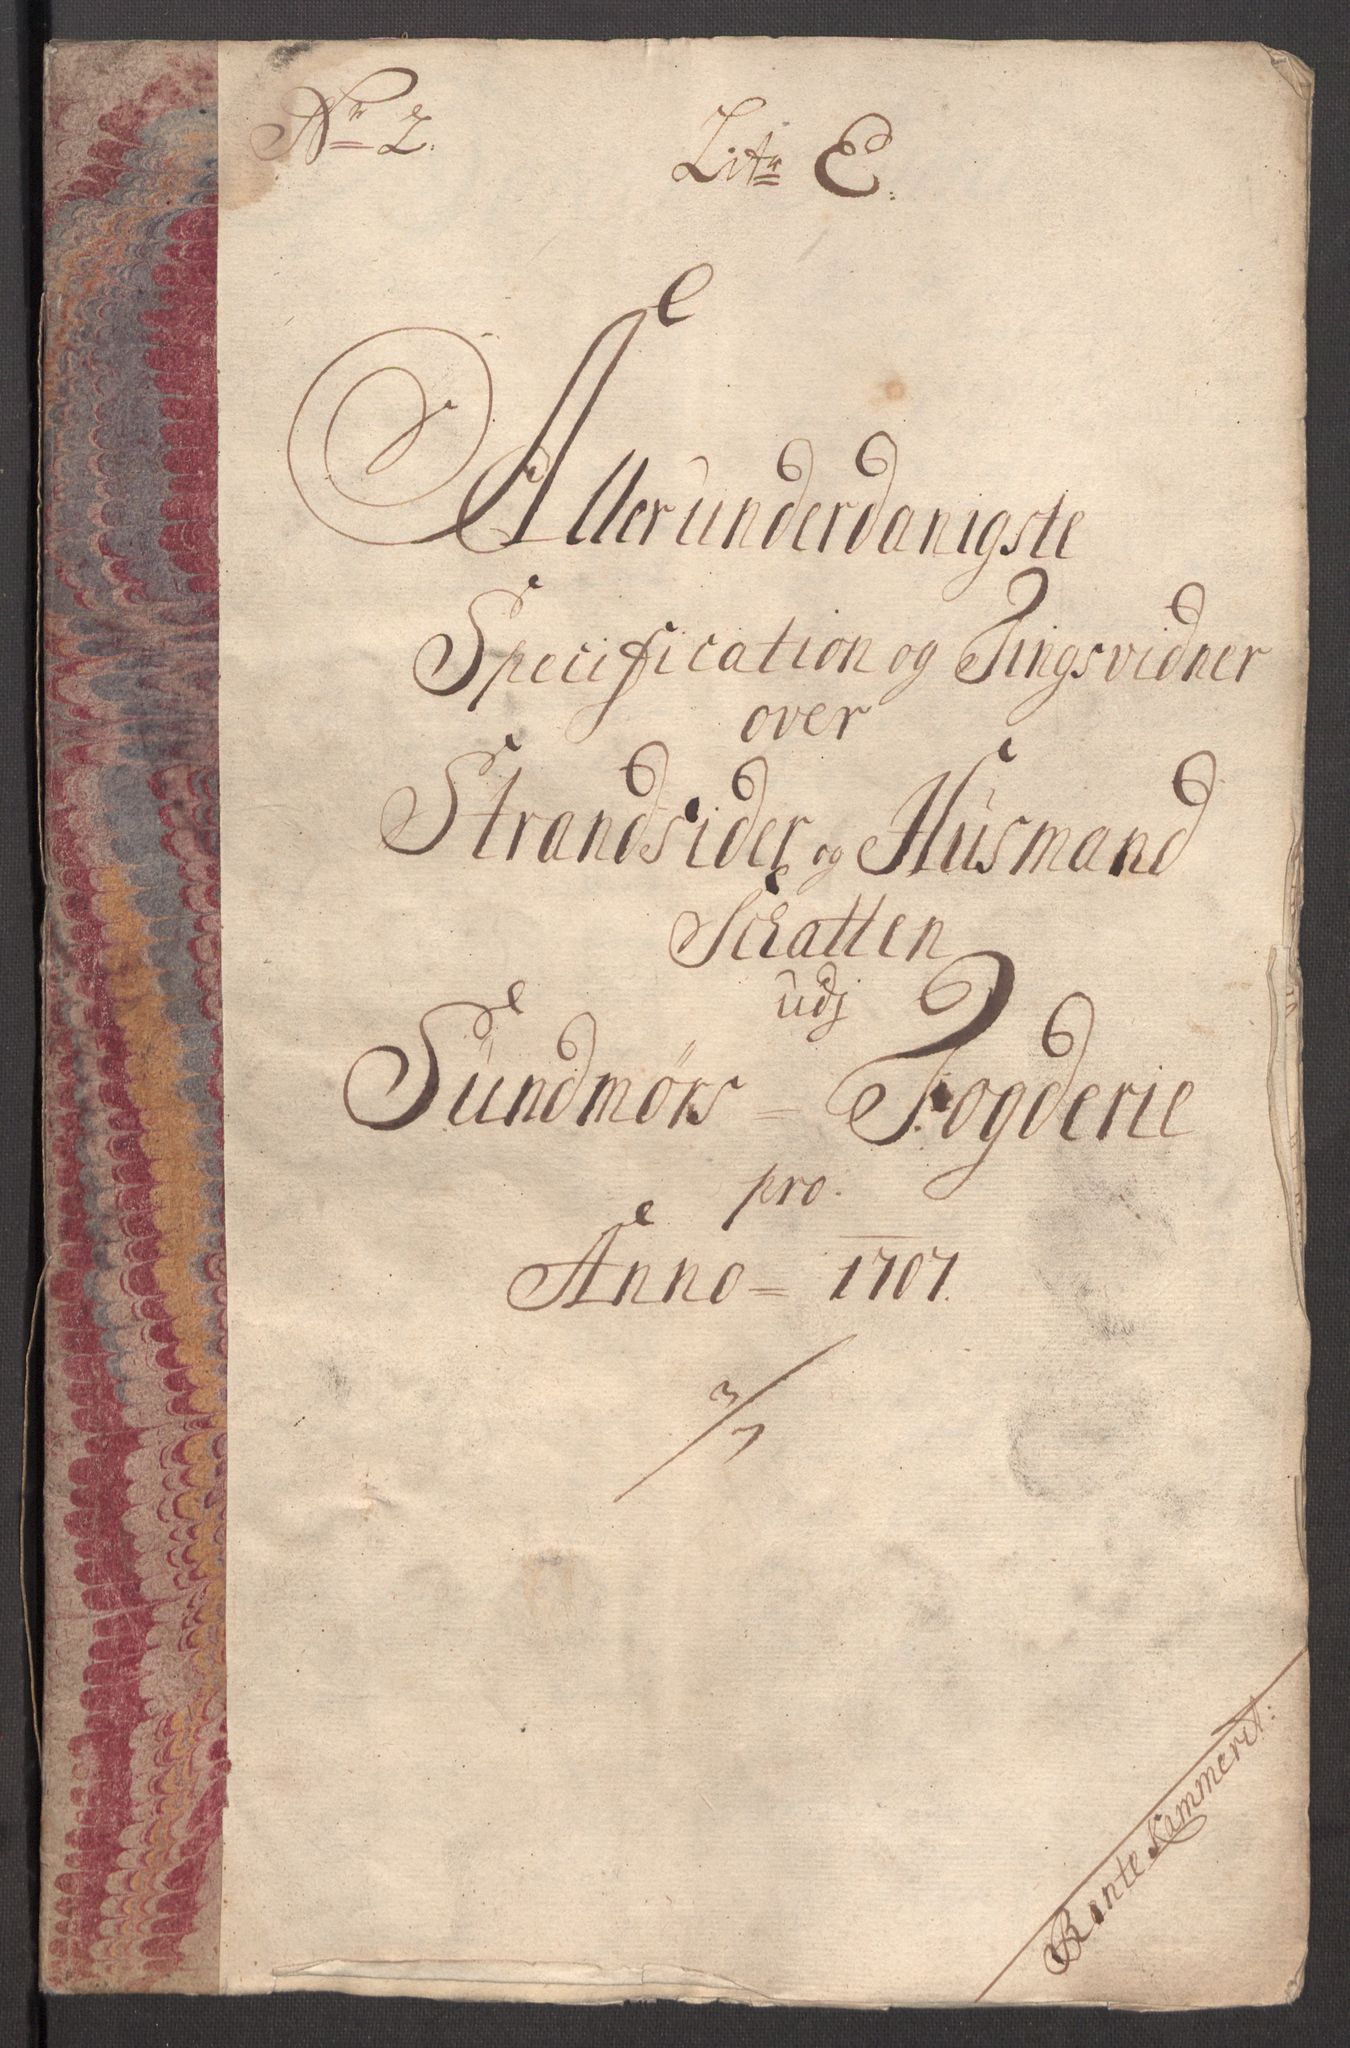 Nr 2.
Litr E.
Allerunderdanigste
Specification og Tingsvidner
over
Strandsider og Husmand
Schatten
udj
Sundmørs = Fogderie
pro.
Anno = 1707.
3/7
Rente Kammerit: